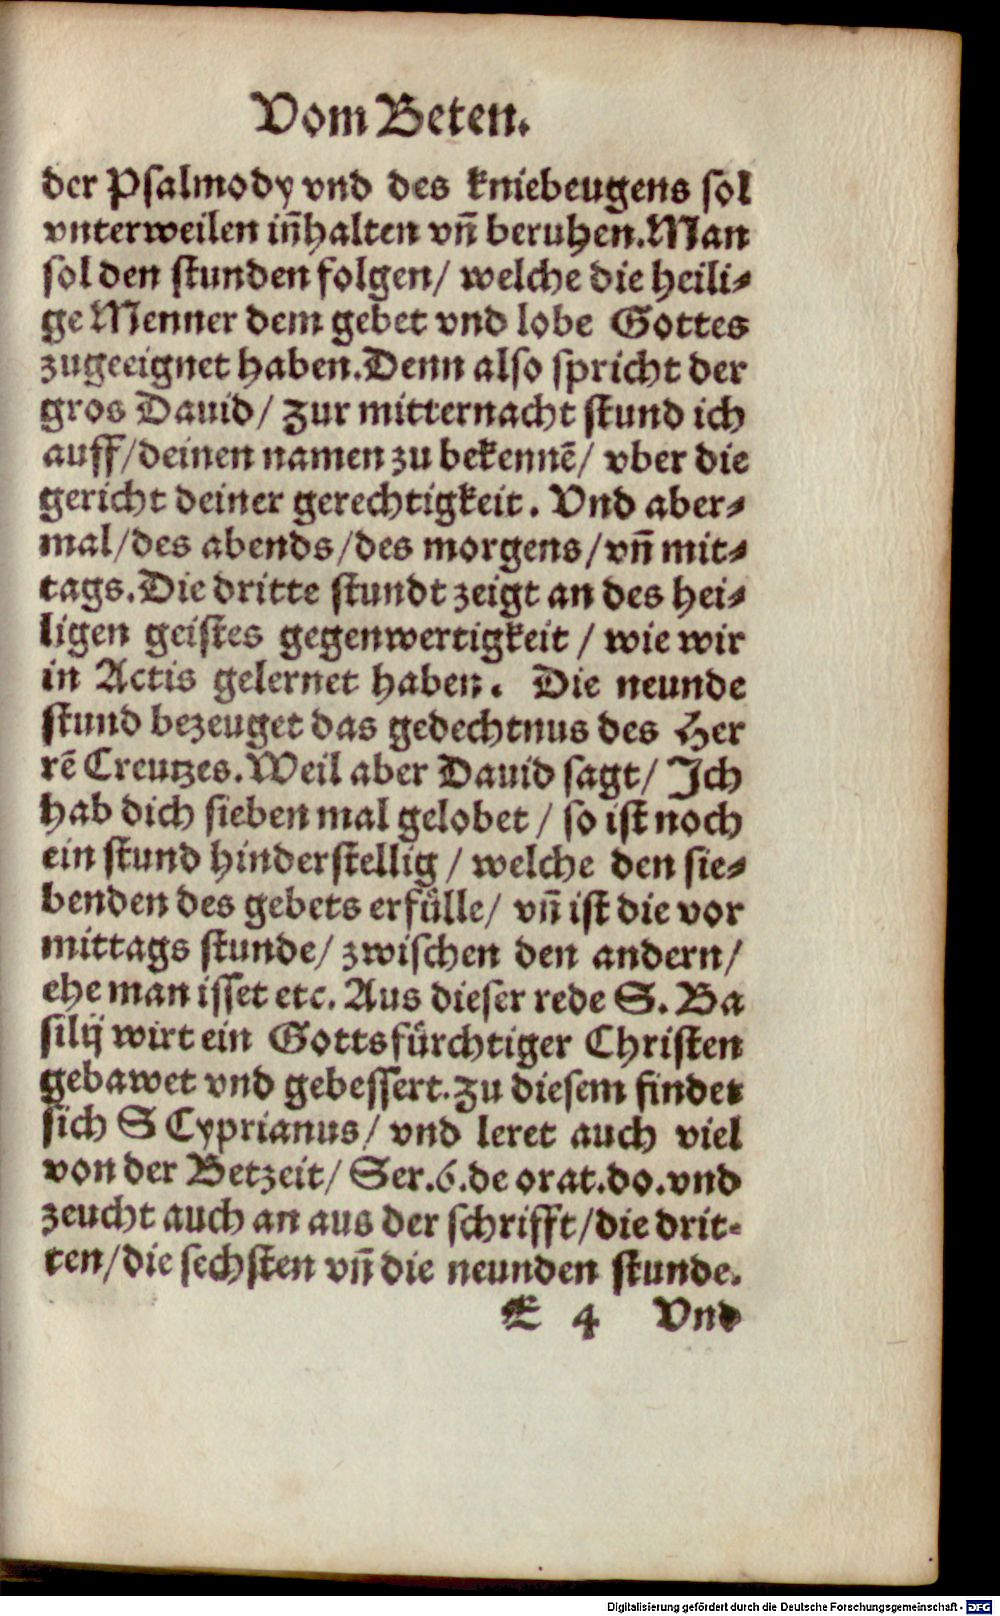 Vom Beten.
der Psalmody vnd des kniebeugens sol
vnterweilen iñhalten vñ beruhen. Man
sol den stunden folgen/ welche die heili-
ge Menner dem gebet vnd lobe Gottes
zugeeignet haben. Denn also spricht der
gros Dauid/ Zur mitternacht stund ich
auff/deinen namen zu bekennẽ/ vber die
gericht deiner gerechtigkeit. Vnd aber-
mal/des abends/des morgens/vñ mit-
tags. Die dritte stundt zeigt an des hei-
ligen geistes gegenwertigkeit / wie wir
in Actis gelernet haben. Die neunde
stund bezeuget das gedechtnus des Her
rẽ Creutzes. Weil aber Dauid sagt/ Ich
hab dich sieben mal gelobet / so ist noch
ein stund hinderstellig / welche den sie-
benden des gebets erfülle/ vñ ist die vor
mittags stunde/ zwischen den andern/
ehe man isset etc. Aus dieser rede S. Ba
silij wirt ein Gottsfürchtiger Christen
gebawet vnd gebessert. Zu diesem findet
sich S Cyprianus/ vnd leret auch viel
von der Betzeit/ Ser.6.de orat.do.vnd
zeucht auch an aus der schrifft/die drit-
ten/die sechsten vñ die neunden stunde.
E 4 Vnd
Digitalisierung gefördert durch die Deutsche Forschungsgemeinschaft - DFG